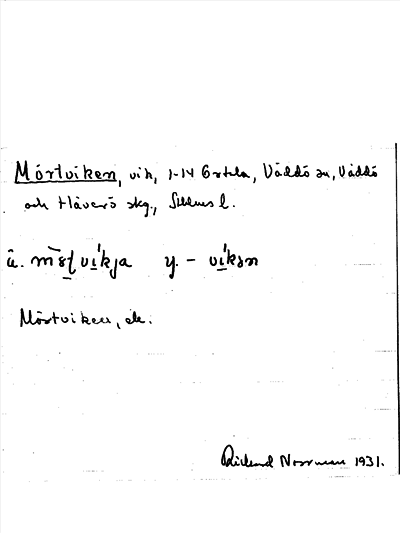 Mörtviken, vik, 1-14 Ortala, Väddö sn, Väddö
och Häverö skg., Sthlms l.
â. mö̀ʈvi̱kja y. - vi̱kən
Mörtviken, ek.
Rickard Norrman 1931.